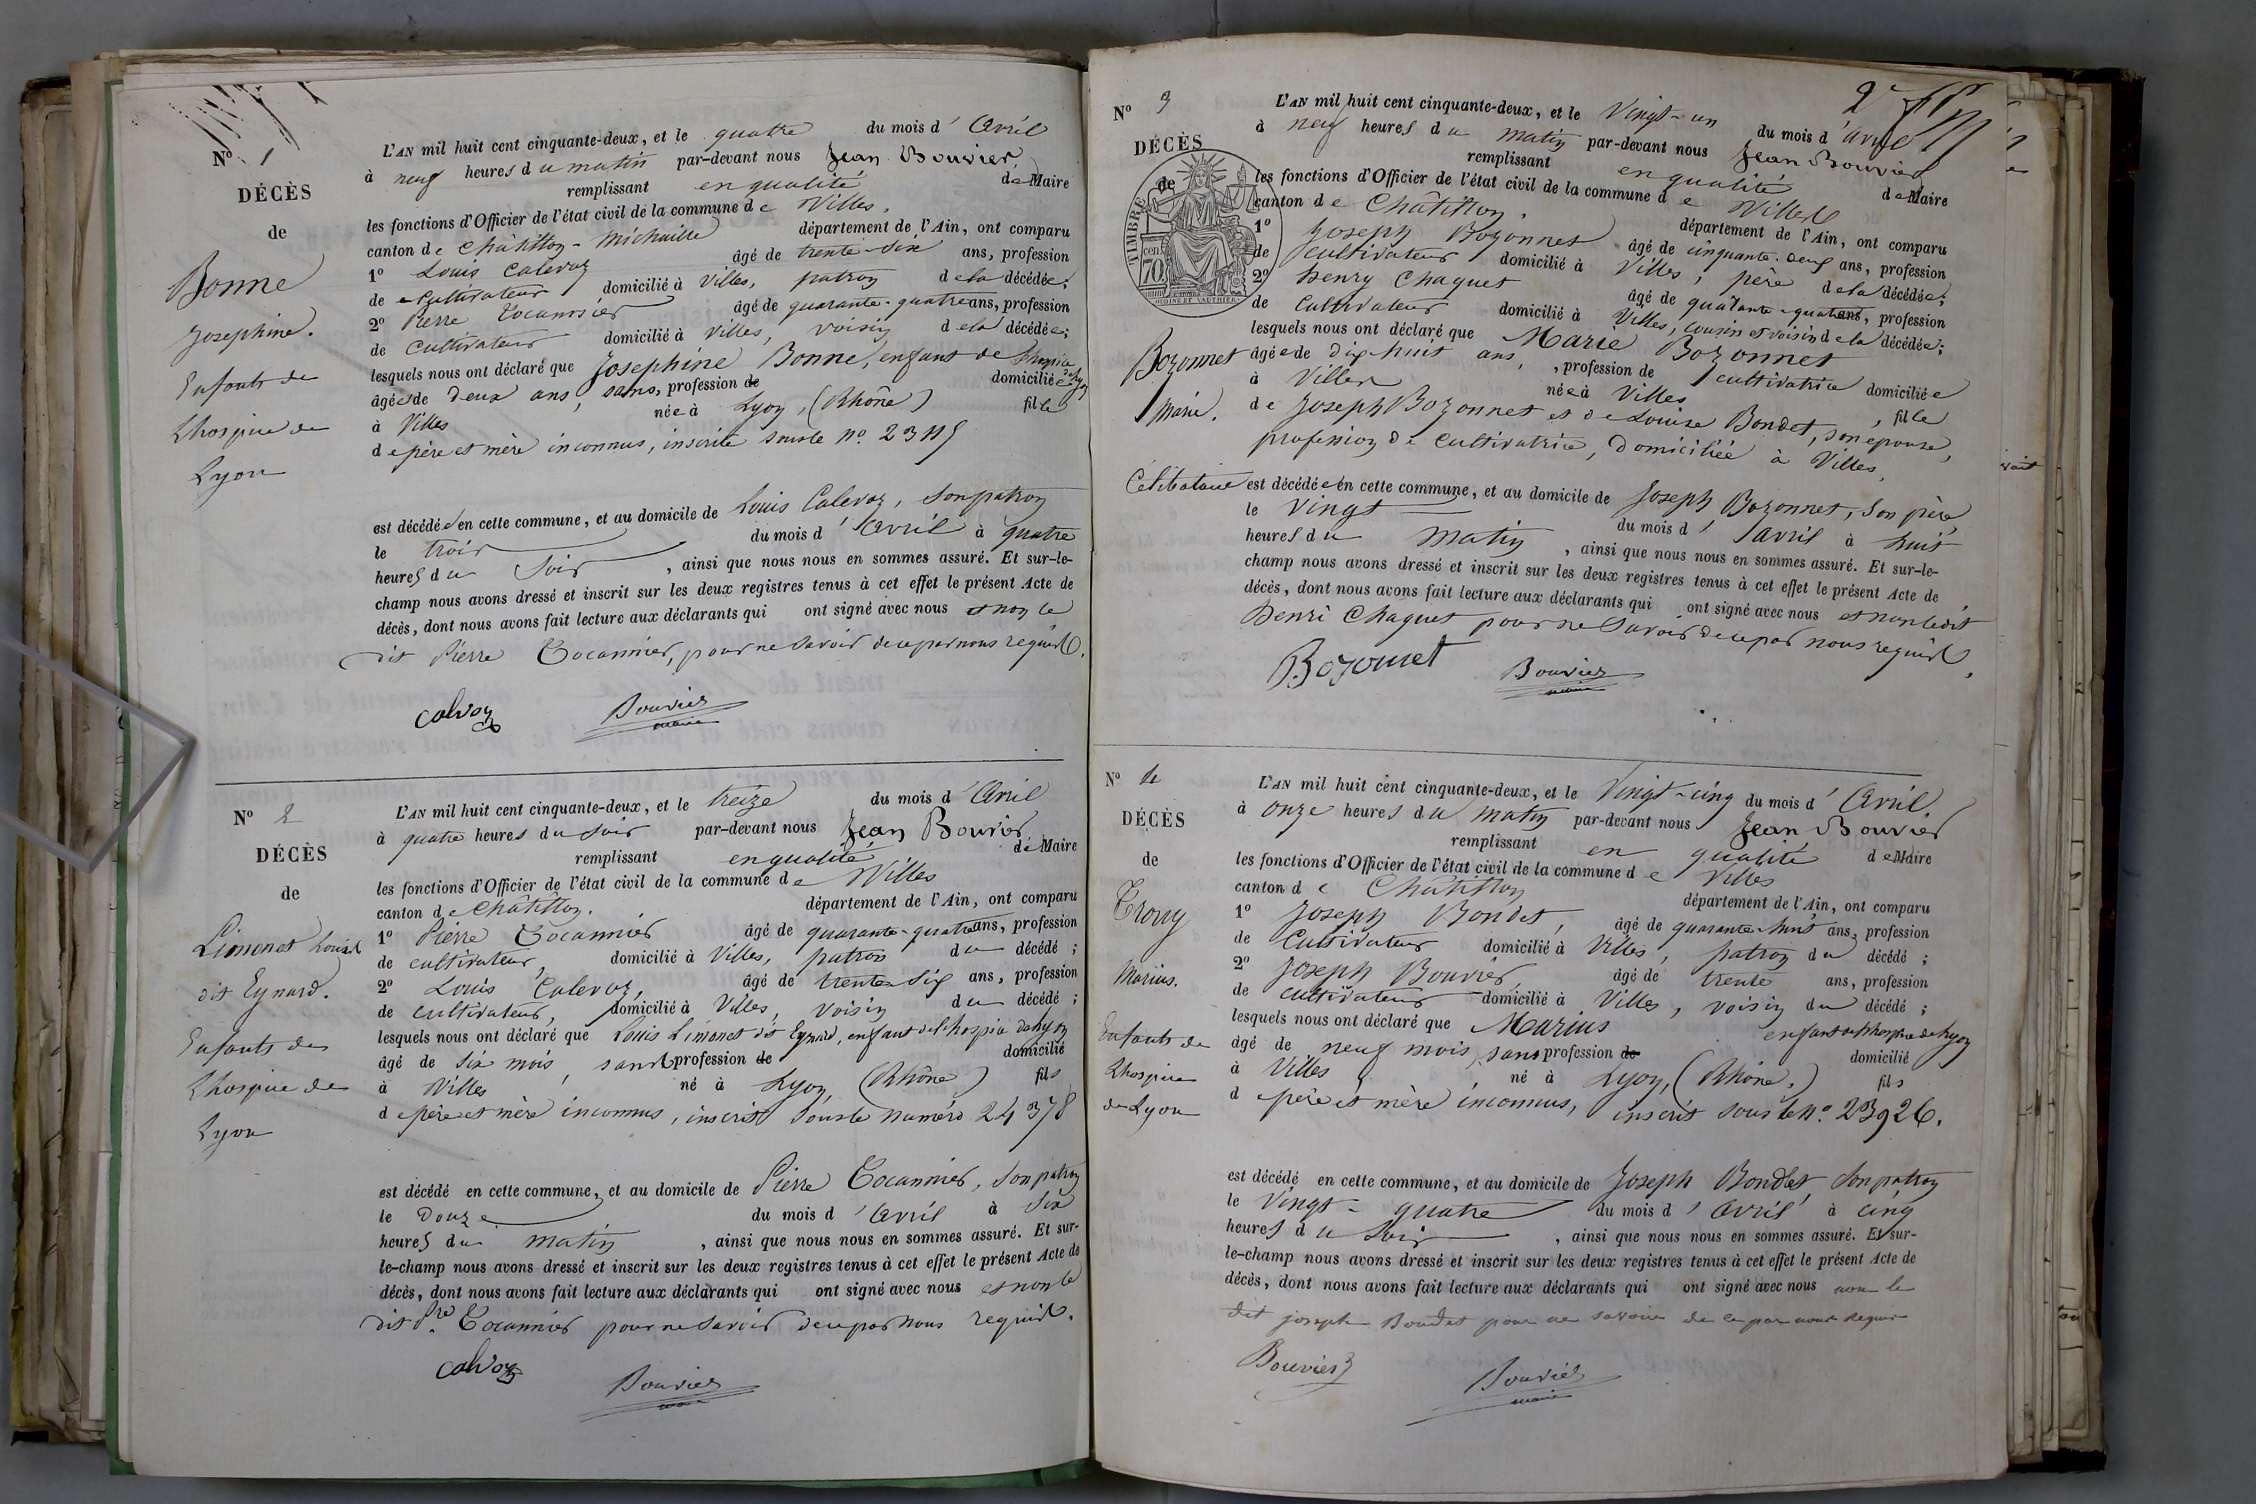 Nº 1
DÉCÈS
de
Bonne
Josephine.
Enfants de
Lhospice de
Lyon
L'AN mil huit cent cinquante-deux, et le quatre du mois d' Avril
à neuf heures du matin par-devant nous Jean Bouvier
remplissant en qualité de Maire
les fonctions d'Officier de l'état civil de la commune de Villes,
canton de Châtillon-Michaille département de l'Ain, ont comparu
1º Louis Calevoz âgé de trente-six ans, profession
de cultivateur domicilié à Villes, patron de la décédée;
2º Pierre Cocannier âgé de quarante-quatre ans, profession
de cultivateur domicilié à Villes, voisin de la décédée;
lesquels nous ont déclaré que Josephine Bonne, enfant de l'hospice de Lyon
âgée de deux ans, sans, profession de domiciliée
à Villes née à Lyon, (Rhône) fille
de père et mère inconnus, inscrite sous le nº
est décédée en cette commune, et au domicile de Louis Calevoz, son patron
le trois du mois d' Avril à quatre
heures du soir, ainsi que nous nous en sommes assuré. Et sur-le-
champ nous avons dressé et inscrit sur les deux registres tenus à cet effet le présent Acte de
décès, dont nous avons fait lecture aux déclarants qui ont signé avec nous et non le
dit Pierre Cocannier, pour ne savoir de ce par nous requis.
Calvoz Bouvier
maire
Nº 2
DÉCÈS
de
Limonet Louis
dit Eynard.
Enfants de
Lhospice de
Lyon
L'AN mil huit cent cinquante-deux, et le treize du mois d' Avril
à quatre heures du soir par-devant nous Jean Bouvier
remplissant en qualité de Maire
les fonctions d'Officier de l'état civil de la commune de Villes
canton de Châtillon. département de l'Ain, ont comparu
1º Pierre Cocannier âgé de quarante-quatre ans, profession
de cultivateur, domicilié à Villes, patron du décédé;
2º Louis Calevoz, âgé de trente-six ans, profession
de cultivateur, domicilié à Villes, voisin du décédé;
lesquels nous ont déclaré que Louis Limonet dit Eynard, enfant de l'hospice de Lyon
âgé de six mois, sans profession de domicilié
à Villes né à Lyon, (Rhône) fils
de père et mère inconnus, inscrit sous le numéro 24378
est décédé en cette commune, et au domicile de Pierre Cocannier, son patron
le douze du mois d' Avril à six
heures du matin, ainsi que nous nous en sommes assuré. Et sur-
le-champ nous avons dressé et inscrit sur les deux registres tenus à cet effet le présent Acte de
décès, dont nous avons fait lecture aux déclarants qui ont signé avec nous et non le
dit Pre. Cocannier pour ne savoir de ce par nous requis.
Calvoz
Bouvier
maire
2e
Nº 3
DÉCÈS
de
TIMBRE
70
Bozonnet
Marie.
Célibataire
L'AN mil huit cent cinquante-deux, et le Vingt-un du mois d' avril
à neuf heures du matin par-devant nous Jean Bouvier
remplissant en qualité de Maire
les fonctions d'Officier de l'état civil de la commune de Villes
canton de Châtillon. département de l'Ain, ont comparu
1º Joseph Bozonnet âgé de cinquante-deux ans, profession
de cultivateur domicilié à Villes, père de la décédée;
2º Henry Chaquet âgé de quarante-quatre ans, profession
de cultivateur domicilié à Villes, cousin et voisin de la décédée;
lesquels nous ont déclaré que Marie Bozonnet
âgée de dix-huit ans, profession de cultivatrice domiciliée
à Villes née à Villes, fille
de Joseph Bozonnet et de Louise Bondet, son épouse,
profession de cultivatrice, domiciliée à Villes,
est décédée en cette commune, et au domicile de Joseph Bozonnet, son père,
le Vingt du mois d' avril à huit
heures du matin, ainsi que nous nous en sommes assuré. Et sur-le-
champ nous avons dressé et inscrit sur les deux registres tenus à cet effet le présent Acte de
décès, dont nous avons fait lecture aux déclarants qui ont signé avec nous et non ledit
Henri Chaquet pour ne savoir de ce par nous requis.
Bozonnet Bouvier
maire
Nº 4
DÉCÈS
de
Marius.
Enfants de
Lhospice
de Lyon
L'AN mil huit cent cinquante-deux, et le Vingt-cinq du mois d' Avril
à onze heures du matin par-devant nous Jean Bouvier
remplissant en qualité de Maire
les fonctions d'Officier de l'état civil de la commune de Villes
canton de Châtillon département de l'Ain, ont comparu
1º Joseph Bondet, âgé de quarante-huit ans, profession
de cultivateur domicilié à Villes, patron du décédé;
2º Joseph Bouvier, âgé de trente ans, profession
de cultivateur domicilié à Villes, voisin du décédé;
lesquels nous ont déclaré que Marius enfant de l'hospice de Lyon
âgé de neuf mois, sans profession de domicilié
à Villes né à Lyon, (Rhône.) fils
de père et mère inconnus, inscrit sous le nº 23926.
est décédé en cette commune, et au domicile de Joseph Bondet, son patron
le Vingt-quatre du mois d' avril à cinq
heures du soir, ainsi que nous nous en sommes assuré. Et sur-
le-champ nous avons dressé et inscrit sur les deux registres tenus à cet effet le présent Acte de
décès, dont nous avons fait lecture aux déclarants qui ont signé avec nous non le
dit joseph Bondet pour ne savoir de ce par nous requis
Bouvier Bouvier
maire